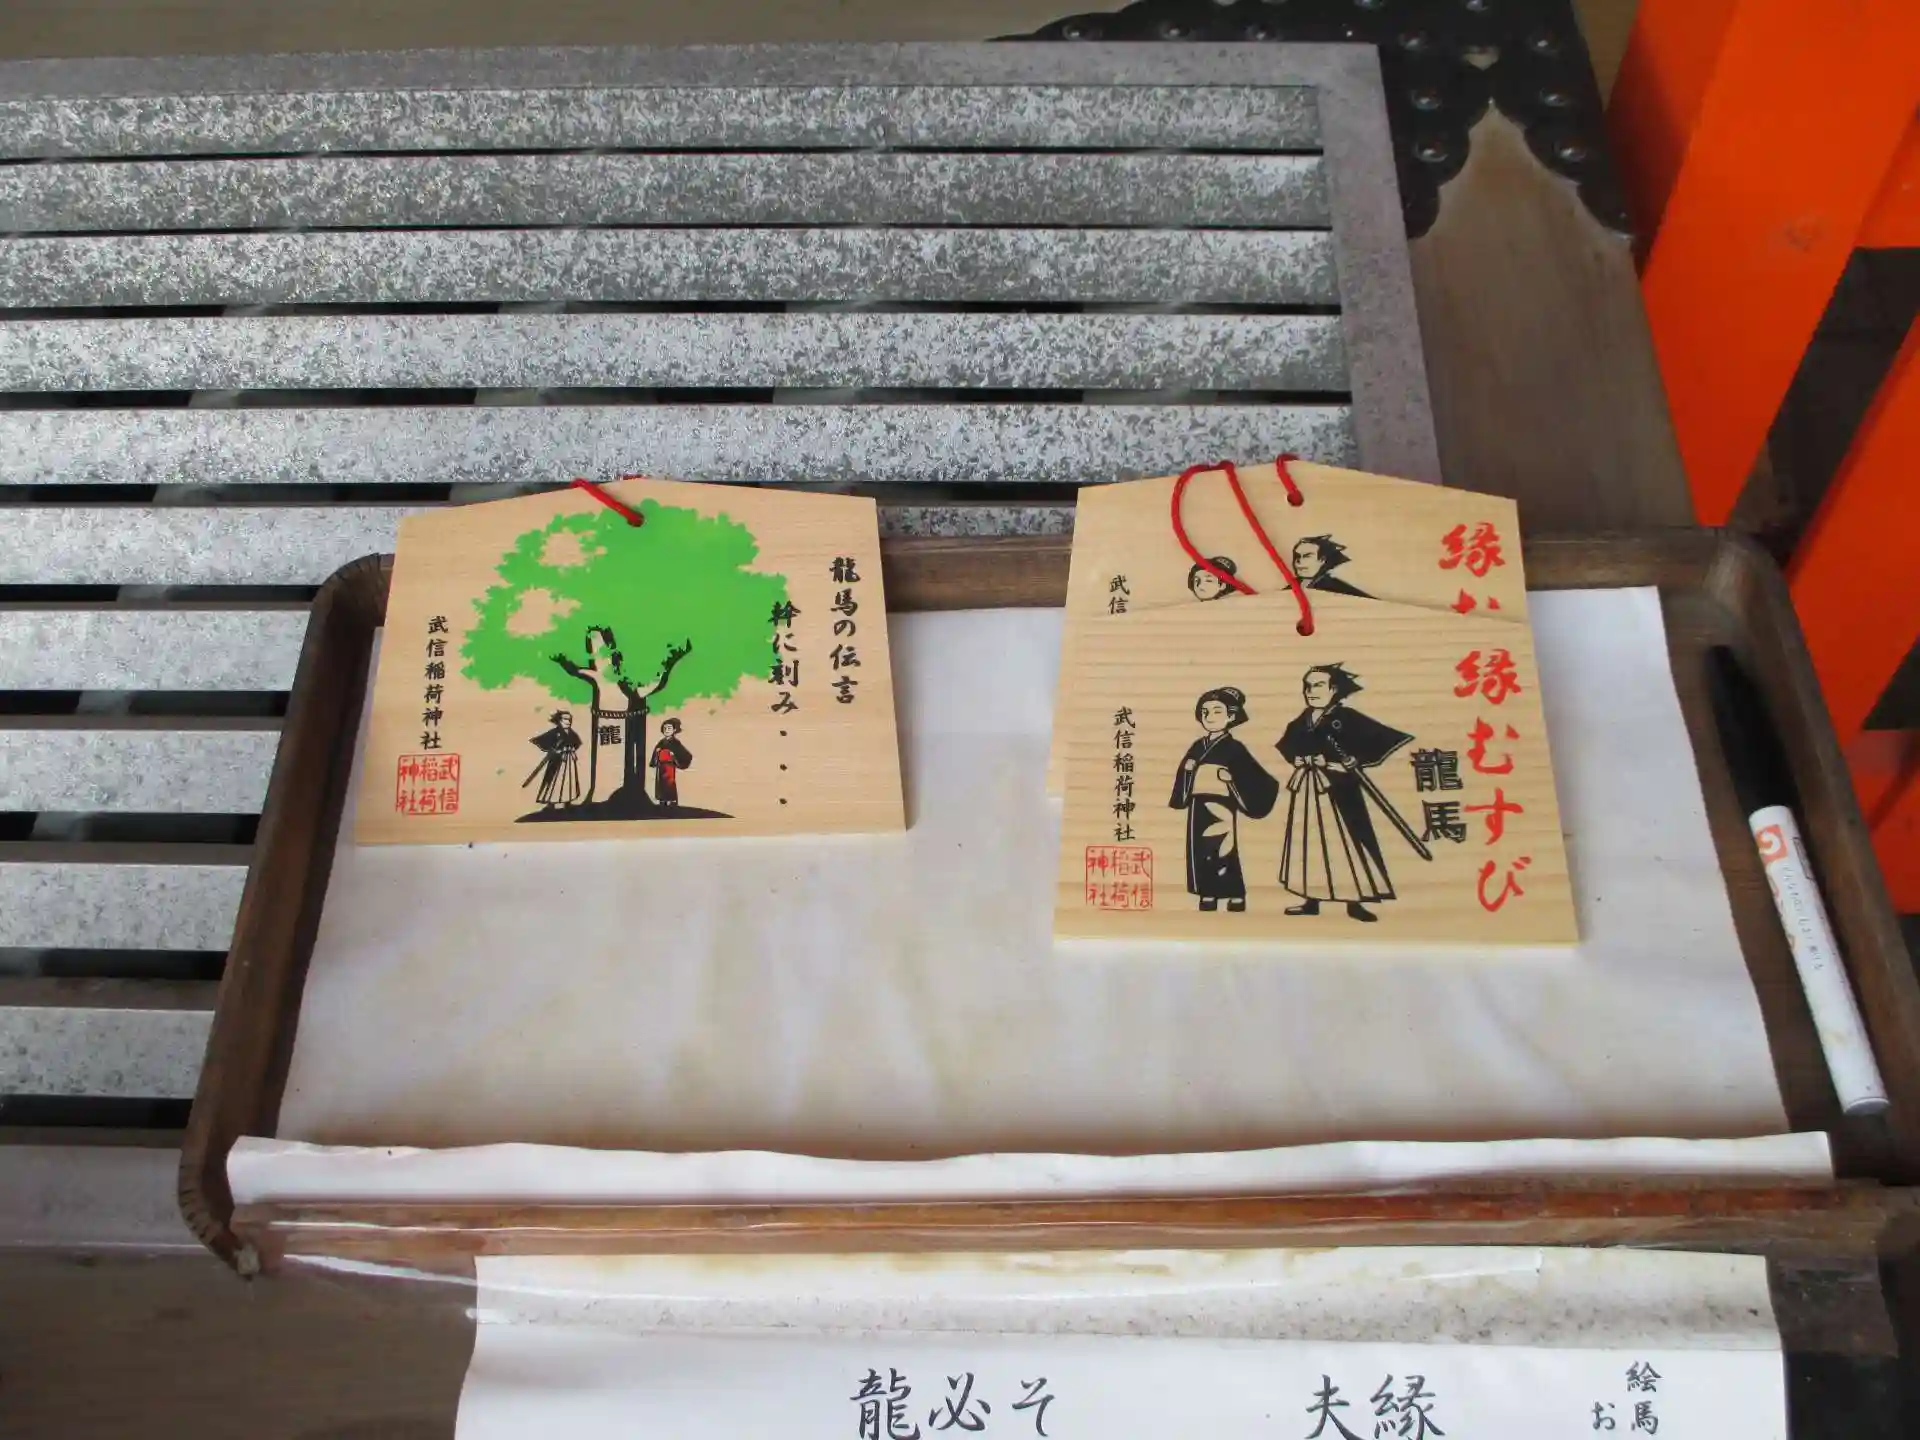 龍馬の伝言
幹に刻み・・・
龍
武信稲荷神社
武信
稲荷
神社
縁む
武信
縁むすび
龍馬
武信稲荷神社
武信
稲荷
神社
絵馬
お
縁
夫
そ
必
龍